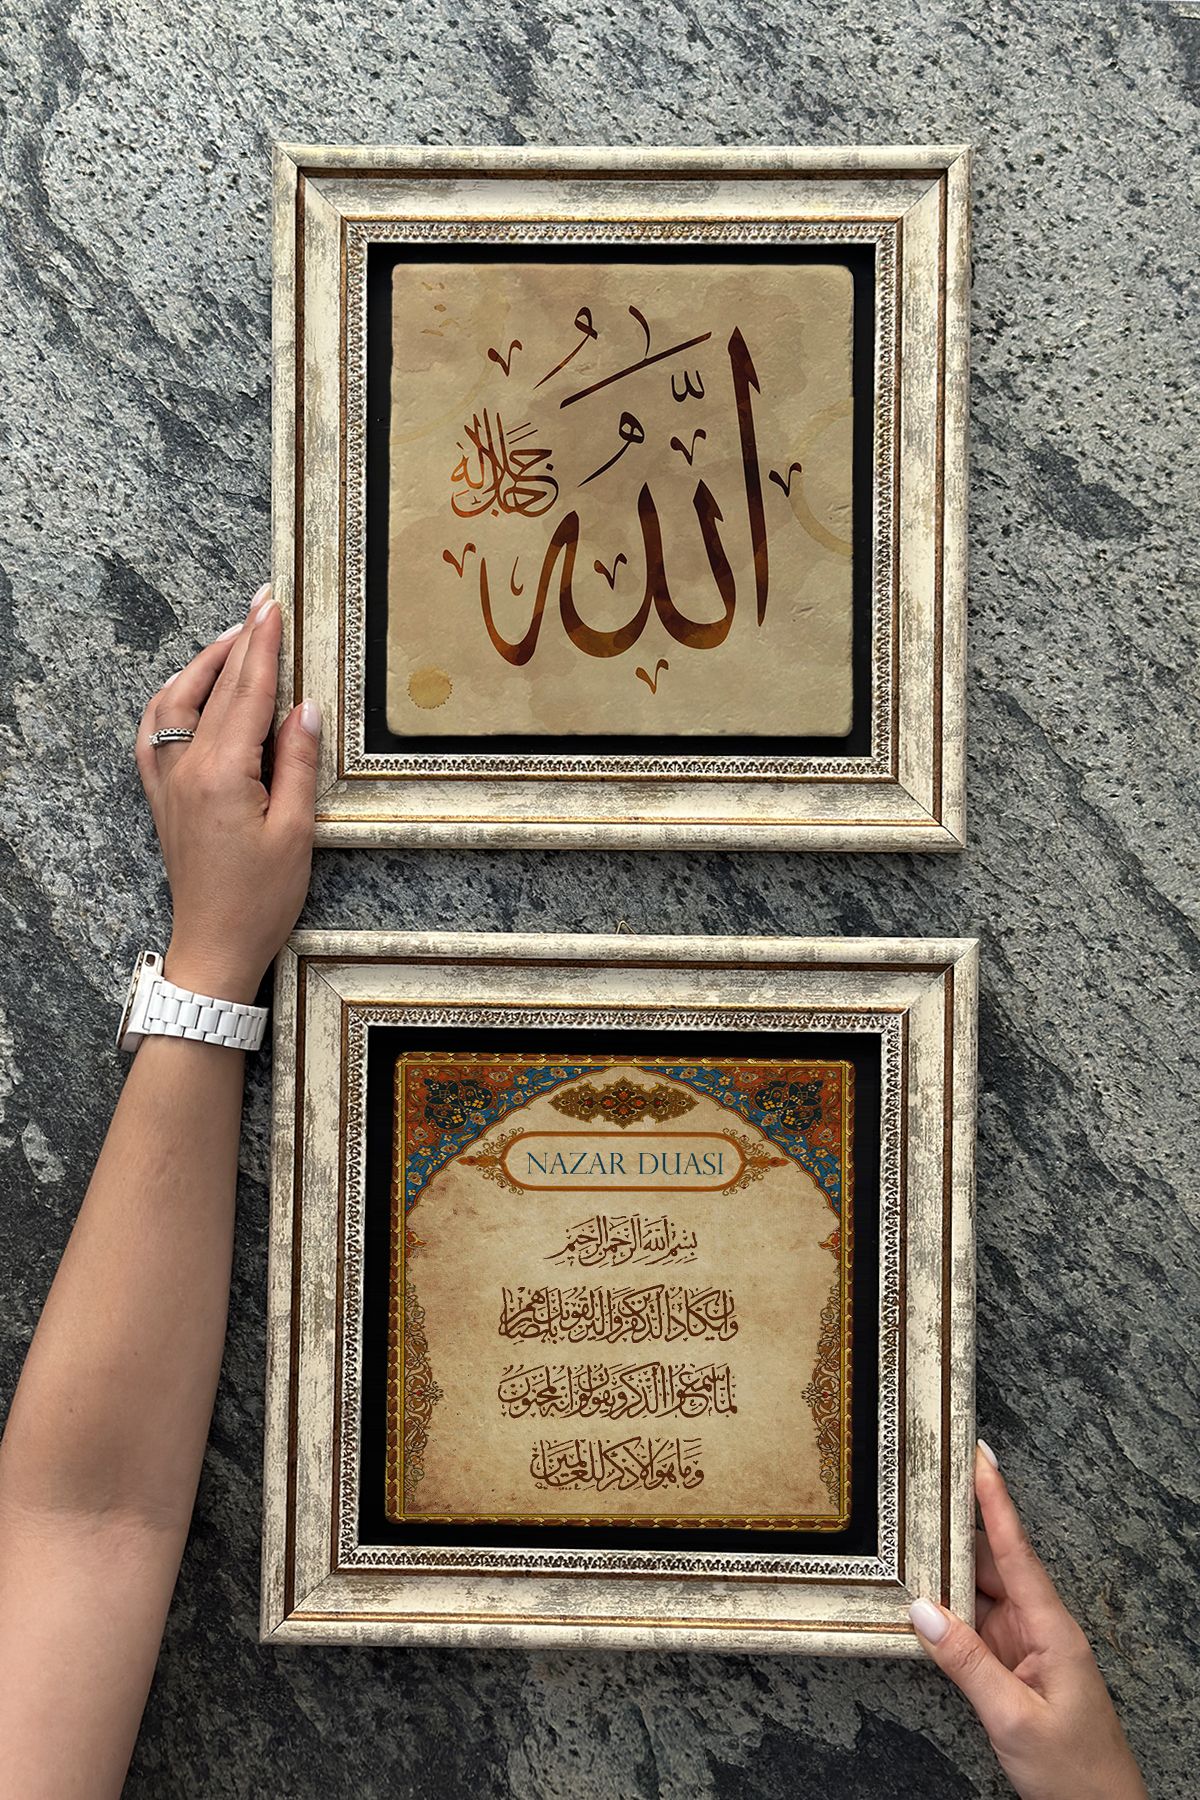 الله
جل جلاله
NAZAR DUASI
بِسْمِ اللهِ الرَّحْمٰنِ الرَّحِيمِ
وَاِنْ يَكَادُ الَّذِينَ كَفَرُوا لَيُزْلِقُونَكَ بِاَبْصَارِهِمْ
لَمَّا سَمِعُوا الذِّكْرَ وَيَقُولُونَ اِنَّهُ لَمَجْنُونٌ
وَمَا هُوَ اِلَّا ذِكْرٌ لِلْعَالَمِينَ